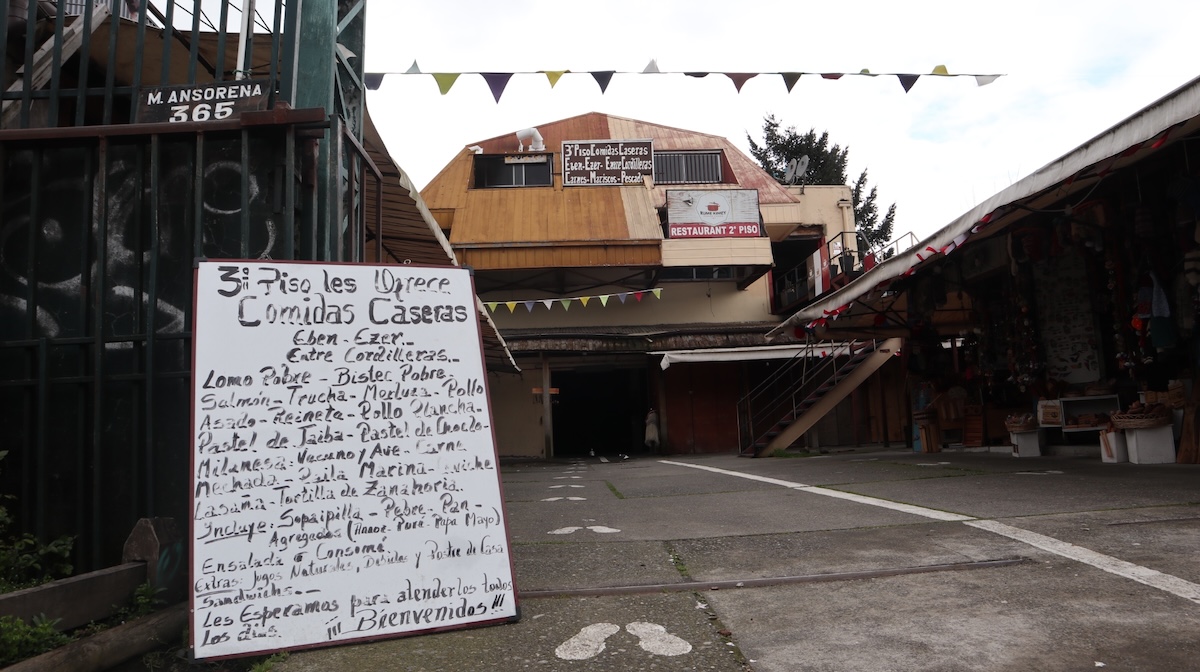 M. ANSORENA
365
3er Piso Comidas Caseras
Eben-Ezer - Entre Cordilleras
Carnes - Mariscos - Pescado
RESTAURANT 2º PISO
3er Piso les Ofrece
Comidas Caseras
Eben - Ezer.-
Entre Cordilleras.-
Lomo Pobre - Bistec Pobre -
Salmón - Trucha - Merluza - Pollo
Asado - Reineta - Pollo Plancha -
Pastel de Jaiba - Pastel de Choclo -
Milanesa: Vacuno y Ave - Carne
Mechada - Paila Marina - Ceviche
Lasaña - Tortilla de Zanahoria.
Incluye: Sopaipilla - Pebre - Pan -
Agregados (Arroz - Pure - Papa Mayo)
Ensalada ó Consomé.
Extras: Jugos Naturales, Bebidas y Postre de Casa
Sandwichs.--
Les Esperamos para atenderlos todos
Los dias. ¡¡¡ Bienvenidos !!!